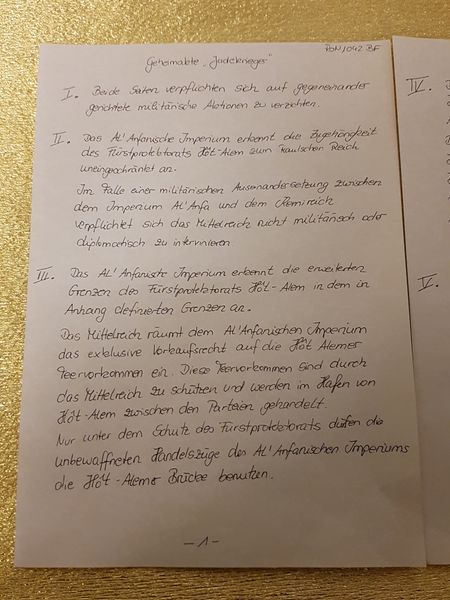 PON/1042 BF
Geheimakte „Jadekrieger"
I. Beide Seiten verpflichten sich auf gegeneinander
gerichtete militärische Aktionen zu verzichten.
II. Das Al'Anfanische Imperium erkennt die Zugehörigkeit
des Fürstprotektorats Hôt-Alem zum Raulschen Reich
uneingeschränkt an.
Im Falle einer militärischen Auseinandersetzung zwischen
dem Imperium Al'Anfa und dem Kemireich
verpflichtet sich das Mittelreich nicht militärisch oder
diplomatisch zu intervenieren
III. Das Al'Anfanische Imperium erkennt die erweiterten
Grenzen des Fürstprotektorats Hôt-Alem in dem in
Anhang definierten Grenzen an.
Das Mittelreich räumt dem Al'Anfanischen Imperium
das exklusive Vorkaufsrecht auf die Hôt Alemer
Teervorkommen ein. Diese Teervorkommen sind durch
das Mittelreich zu schützen und werden im Hafen von
Hôt-Alem zwischen den Parteien gehandelt.
Nur unter dem Schutz des Fürstprotektorats dürfen die
unbewaffneten Handelszüge des Al'Anfanischen Imperiums
die Hôt-Alemer Brücke benutzen.
- 1 -
IV.
V.